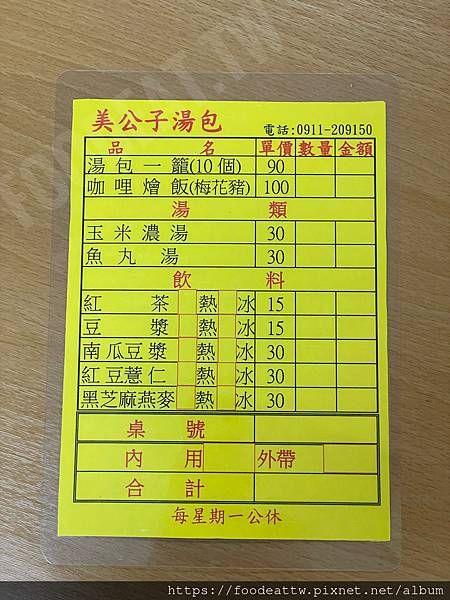 美公子湯包 電話:0911-209150
品 名 單價 數量 金額
湯包一籠(10個) 90
咖哩燴飯(梅花豬) 100
湯 類
玉米濃湯 30
魚丸 湯 30
飲 料
紅 茶 熱 冰 15
豆 漿 熱 冰 15
南瓜豆漿 熱 冰 30
紅豆薏仁 熱 冰 30
黑芝麻燕麥 熱 冰 30
桌 號
內 用 外帶
合 計
每星期一公休
https://foodeattw.pixnet.net/album